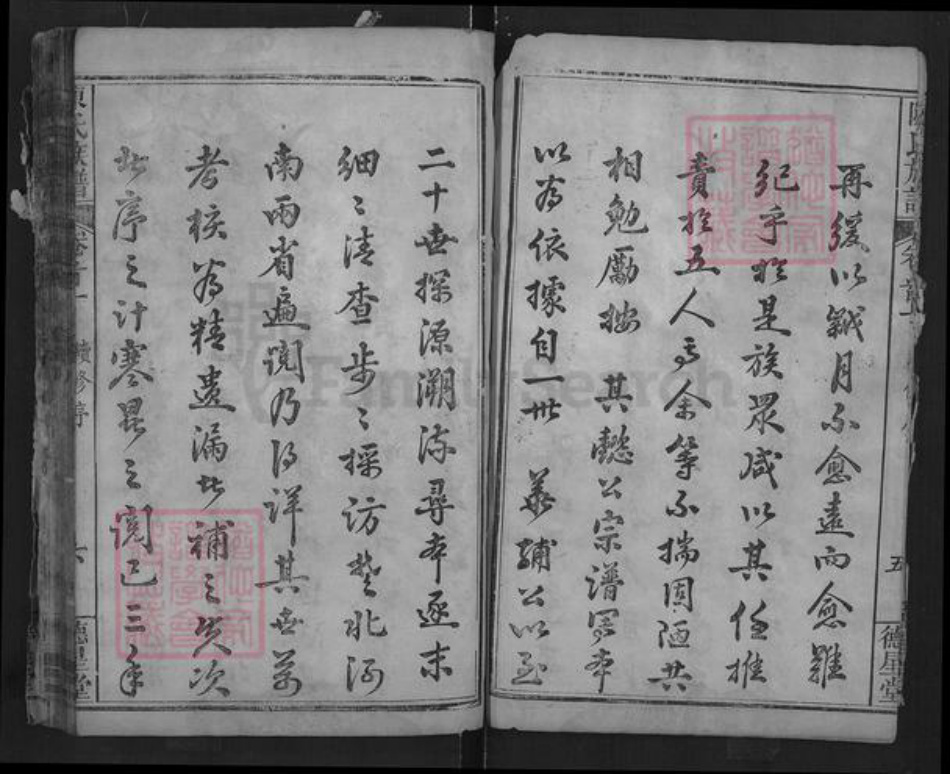 再緩以歲月不愈遠而愈難
紀乎於是族眾咸以其任推
責於五人予余等不揣固陋共
相勉勵按 其懿公宗譜字本
以為依據自一世 公以至
二十世探源溯流尋本逐末
細ミ清查步ミ採訪楚北河
南兩省遍閱乃得詳其世系
考核為精遺漏者補之失次
者序之計寒暑之閱已三年
陳氏族譜
續修序
六
德星堂
陳氏族譜
五
德星堂
FamilySearch